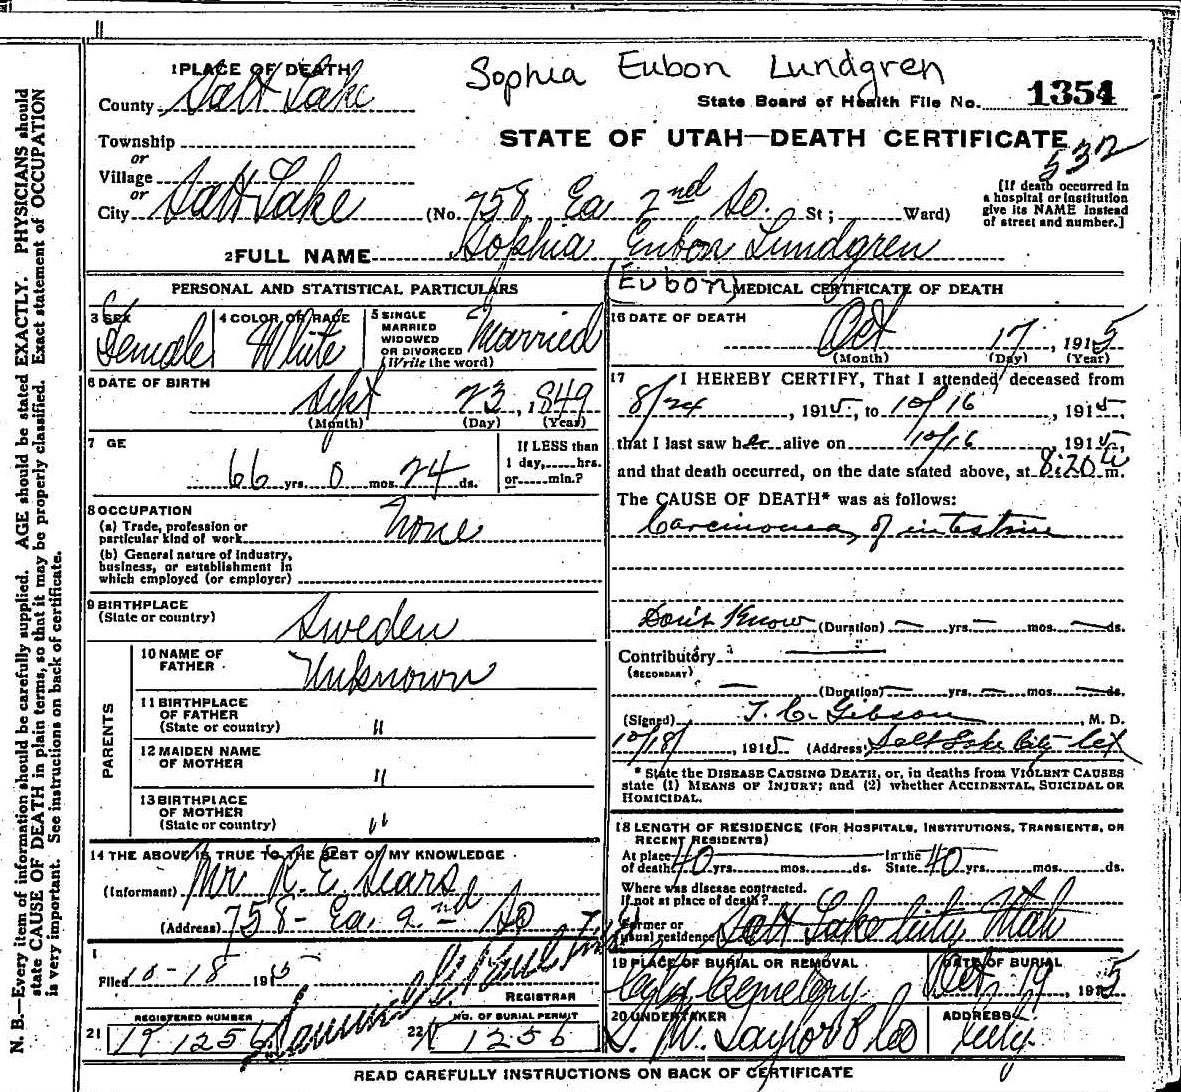 Sophia Eubon Lundgren
1 PLACE OF DEATH
County Salt Lake
State Board of Health File No. 1354
Township
STATE OF UTAH—DEATH CERTIFICATE
532
or
Village
or
City Salt Lake (No. 758 Ea 2nd So. St; Ward)
[If death occurred in
a hospital or institution
give its NAME instead
of street and number.]
2 FULL NAME Sophia Eubon Lundgren
(Eubon)
PERSONAL AND STATISTICAL PARTICULARS
3 SEX
Female
4 COLOR OR RACE
White
5 SINGLE
MARRIED
WIDOWED
OR DIVORCED
(Write the word)
Married
6 DATE OF BIRTH
Sept 23, 1849
(Month) (Day) (Year)
7 GE
66 yrs. 0 mos. 24 ds.
If LESS than
1 day, hrs.
or min.?
8 OCCUPATION
(a) Trade, profession or
particular kind of work None
(b) General nature of industry,
business, or establishment in
which employed (or employer)
9 BIRTHPLACE
(State or country) Sweden
PARENTS
10 NAME OF
FATHER Unknown
11 BIRTHPLACE
OF FATHER
(State or country) "
12 MAIDEN NAME
OF MOTHER "
13 BIRTHPLACE
OF MOTHER
(State or country) "
14 THE ABOVE IS TRUE TO THE BEST OF MY KNOWLEDGE
(Informant) Mr R. E. Sears
(Address) 758 - Ea. 2nd So
Filed 10-18 1915
REGISTRAR
REGISTERED NUMBER
21 1256
22 NO. OF BURIAL PERMIT
1256
MEDICAL CERTIFICATE OF DEATH
16 DATE OF DEATH
Oct 17, 1915
(Month) (Day) (Year)
17 I HEREBY CERTIFY, That I attended deceased from
8/24, 1915, to 10/16, 1915,
that I last saw her alive on 10/16, 1915,
and that death occurred, on the date stated above, at 8:20 a m.
The CAUSE OF DEATH* was as follows:
Carcinoma of intestine
Don't Know (Duration) — yrs. — mos. — ds.
Contributory
(SECONDARY)
— (Duration) — yrs. — mos. — ds.
(Signed) T. C. Gibson, M. D.
10/18/, 1915 (Address) Salt Lake City
* State the DISEASE CAUSING DEATH, or, in deaths from VIOLENT CAUSES
state (1) MEANS OF INJURY; and (2) whether ACCIDENTAL, SUICIDAL OR
HOMICIDAL.
18 LENGTH OF RESIDENCE (FOR HOSPITALS, INSTITUTIONS, TRANSIENTS, OR
RECENT RESIDENTS)
At place
of death 40 yrs. mos. ds. In the
State 40 yrs. mos. ds.
Where was disease contracted.
If not at place of death?
Former or
usual residence Salt Lake City Utah
19 PLACE OF BURIAL OR REMOVAL
City Cemetery
DATE OF BURIAL
Oct 19, 1915
20 UNDERTAKER
S. M. Taylor & Co
ADDRESS
City
READ CAREFULLY INSTRUCTIONS ON BACK OF CERTIFICATE
N. B.—Every item of information should be carefully supplied. AGE should be stated EXACTLY. PHYSICIANS should
state CAUSE OF DEATH in plain terms, so that it may be properly classified. Exact statement of OCCUPATION
is very important. See instructions on back of certificate.